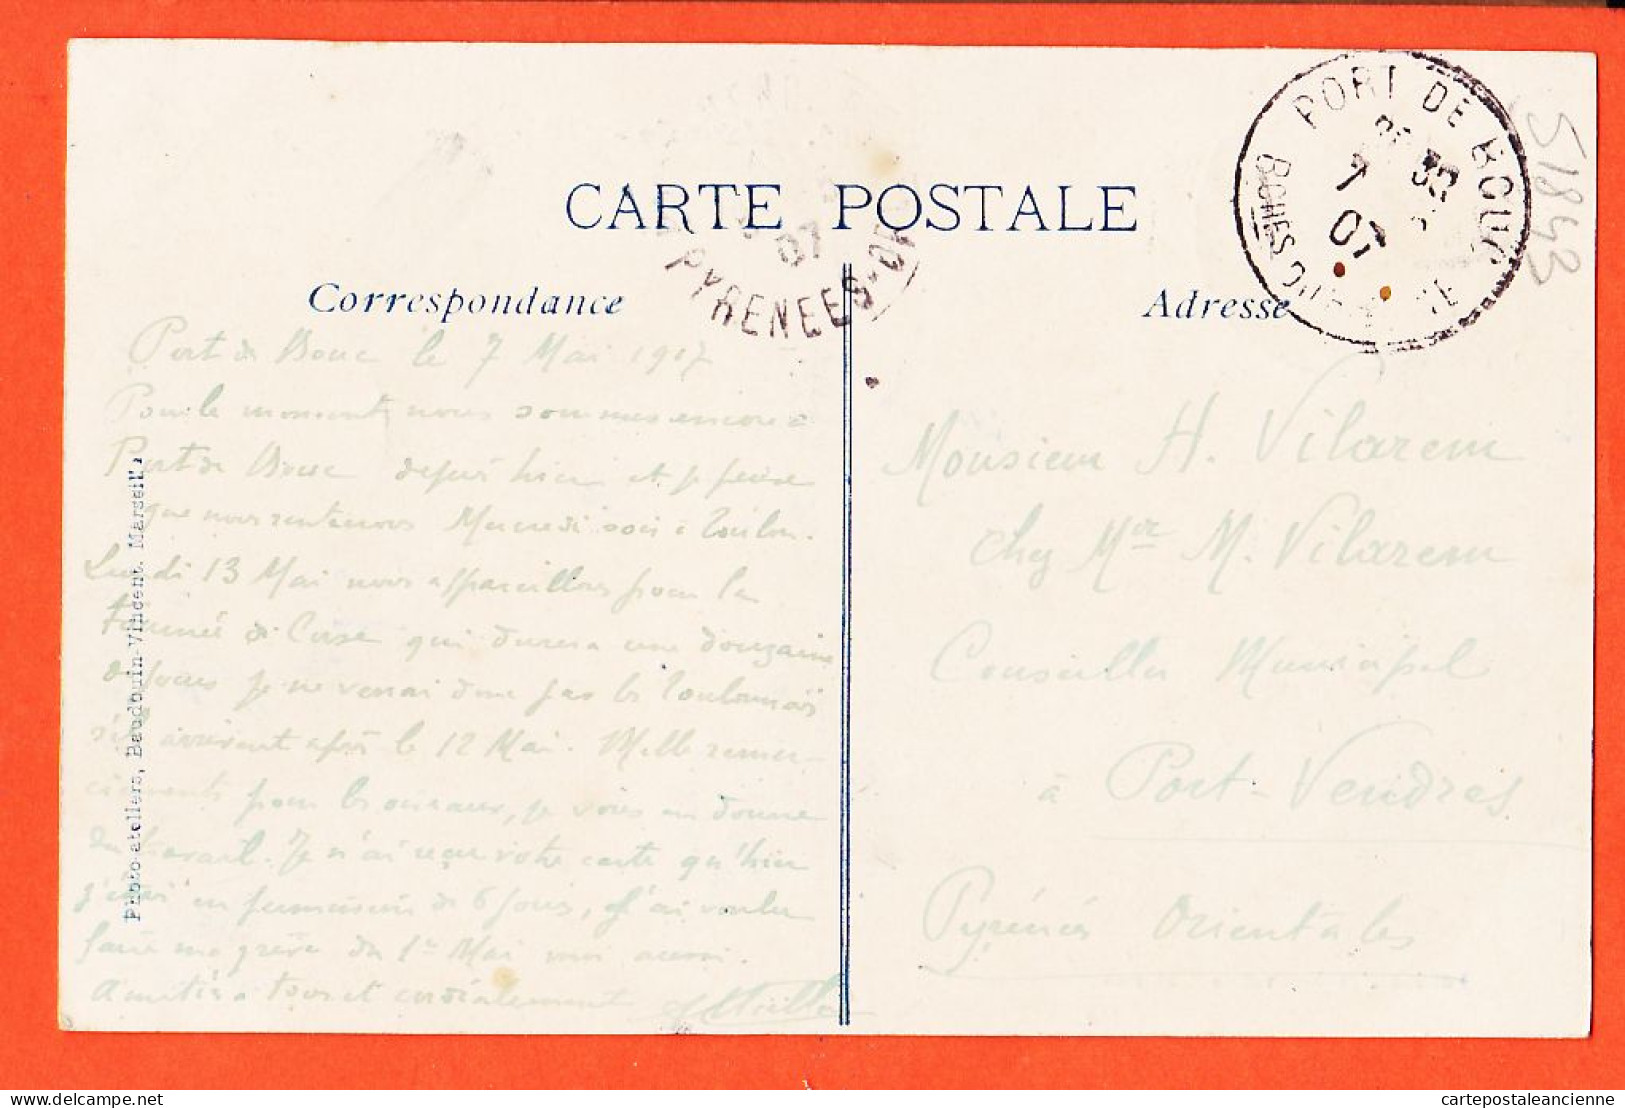 CARTE POSTALE
Correspondance
Adresse
PORT DE BOUC
7
07
BCHES DU
07
PYRENEES-OR
51843
Port de Bouc le 7 Mai 1907
Pour le moment nous sommes encore à
Port de Bouc depuis hier et je pense
que nous rentrerons Mercredi soir à Toulon.
Lundi 13 Mai nous appareillons pour la
tournée de Corse qui durera une douzaine
de jours je ne verrai donc pas les Toulonnais
s'ils arrivent après le 12 Mai. Mille remer-
ciements pour les oiseaux, je vous en donne
du tabac. Je n'ai reçu votre carte qu'hier
j'étais en permission de 6 jours, j'ai voulu
faire ma grève du 1er Mai moi aussi.
Amitiés à tous et cordialement
Monsieur H. Vilarem
chez Mer M. Vilarem
Conseiller Municipal
à Port-Vendres
Pyrénées Orientales
Photo-ateliers, Baudouin-Vincent. Marseille
cartepostaleancienne